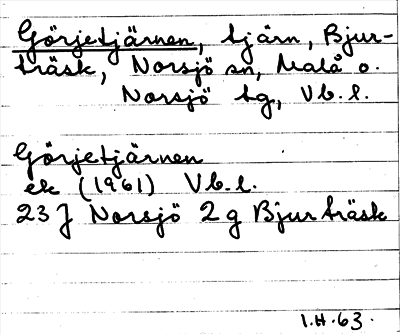 Görjetjärnen, tjärn, Bjur-
träsk, Norsjö sn, Malå o.
Norsjö tg, Vb. l.
Görjetjärnen
ek (1961) Vb. l.
23 J Norsjö 2 g Bjurträsk
I.H.63.